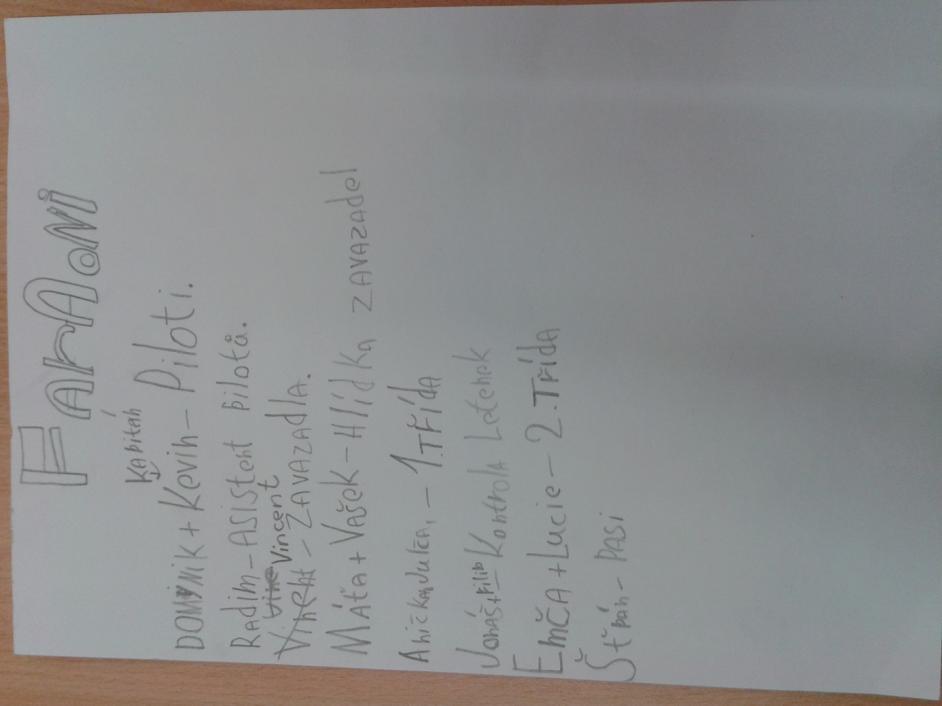 FARAONI
Kapitán
DOMINIK + Kevin - Piloti.
Radim - ASistent pilotů.
Vincent
- ZAVAZADLA.
MÁŤA + VAŠEK - HlídKA ZAVAZADEL
Anička, Julča, - 1. TŘÍDA
Jonáš + Filip - Kontrola Letenek
EmČA + Lucie - 2. Třída
Štěpán - PASI